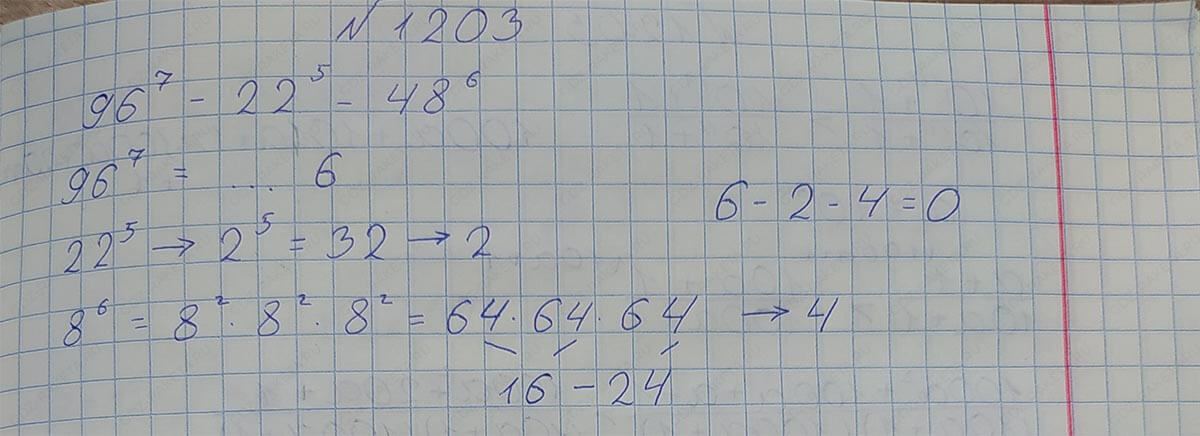 № 1203
96⁷ - 22⁵ - 48⁶
96⁷ = ... 6
6 - 2 - 4 = 0
22⁵ → 2⁵ = 32 → 2
8⁶ = 8² · 8² · 8² = 64 · 64 · 64 → 4
16 - 24